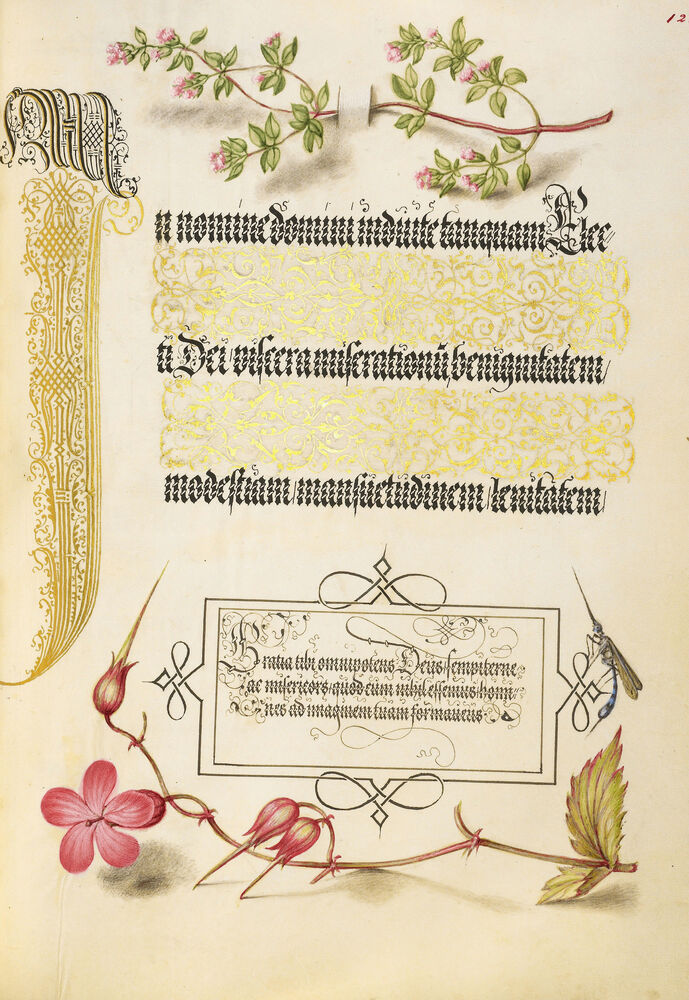 12
In nomine domini induite tanquam Elec
ti Dei viscera miserationū, benignitatem,
modestiam, mansuetudinem, lenitatem,
Gratia tibi omnipotens Deus sempiterne
ac misericors, quod cum nihil essemus homi
nes ad imaginem tuam formaveris